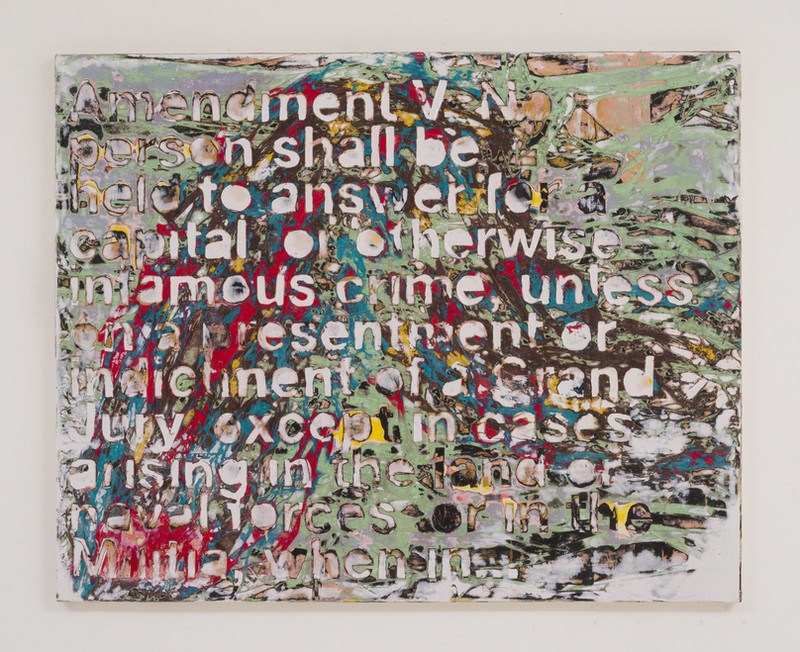 Amendment V No
person shall be
held to answer for a
capital, or otherwise
infamous crime, unless
on a presentment or
indictment of a Grand
Jury, except in cases
arising in the land or
naval forces or in the
Militia, when in...